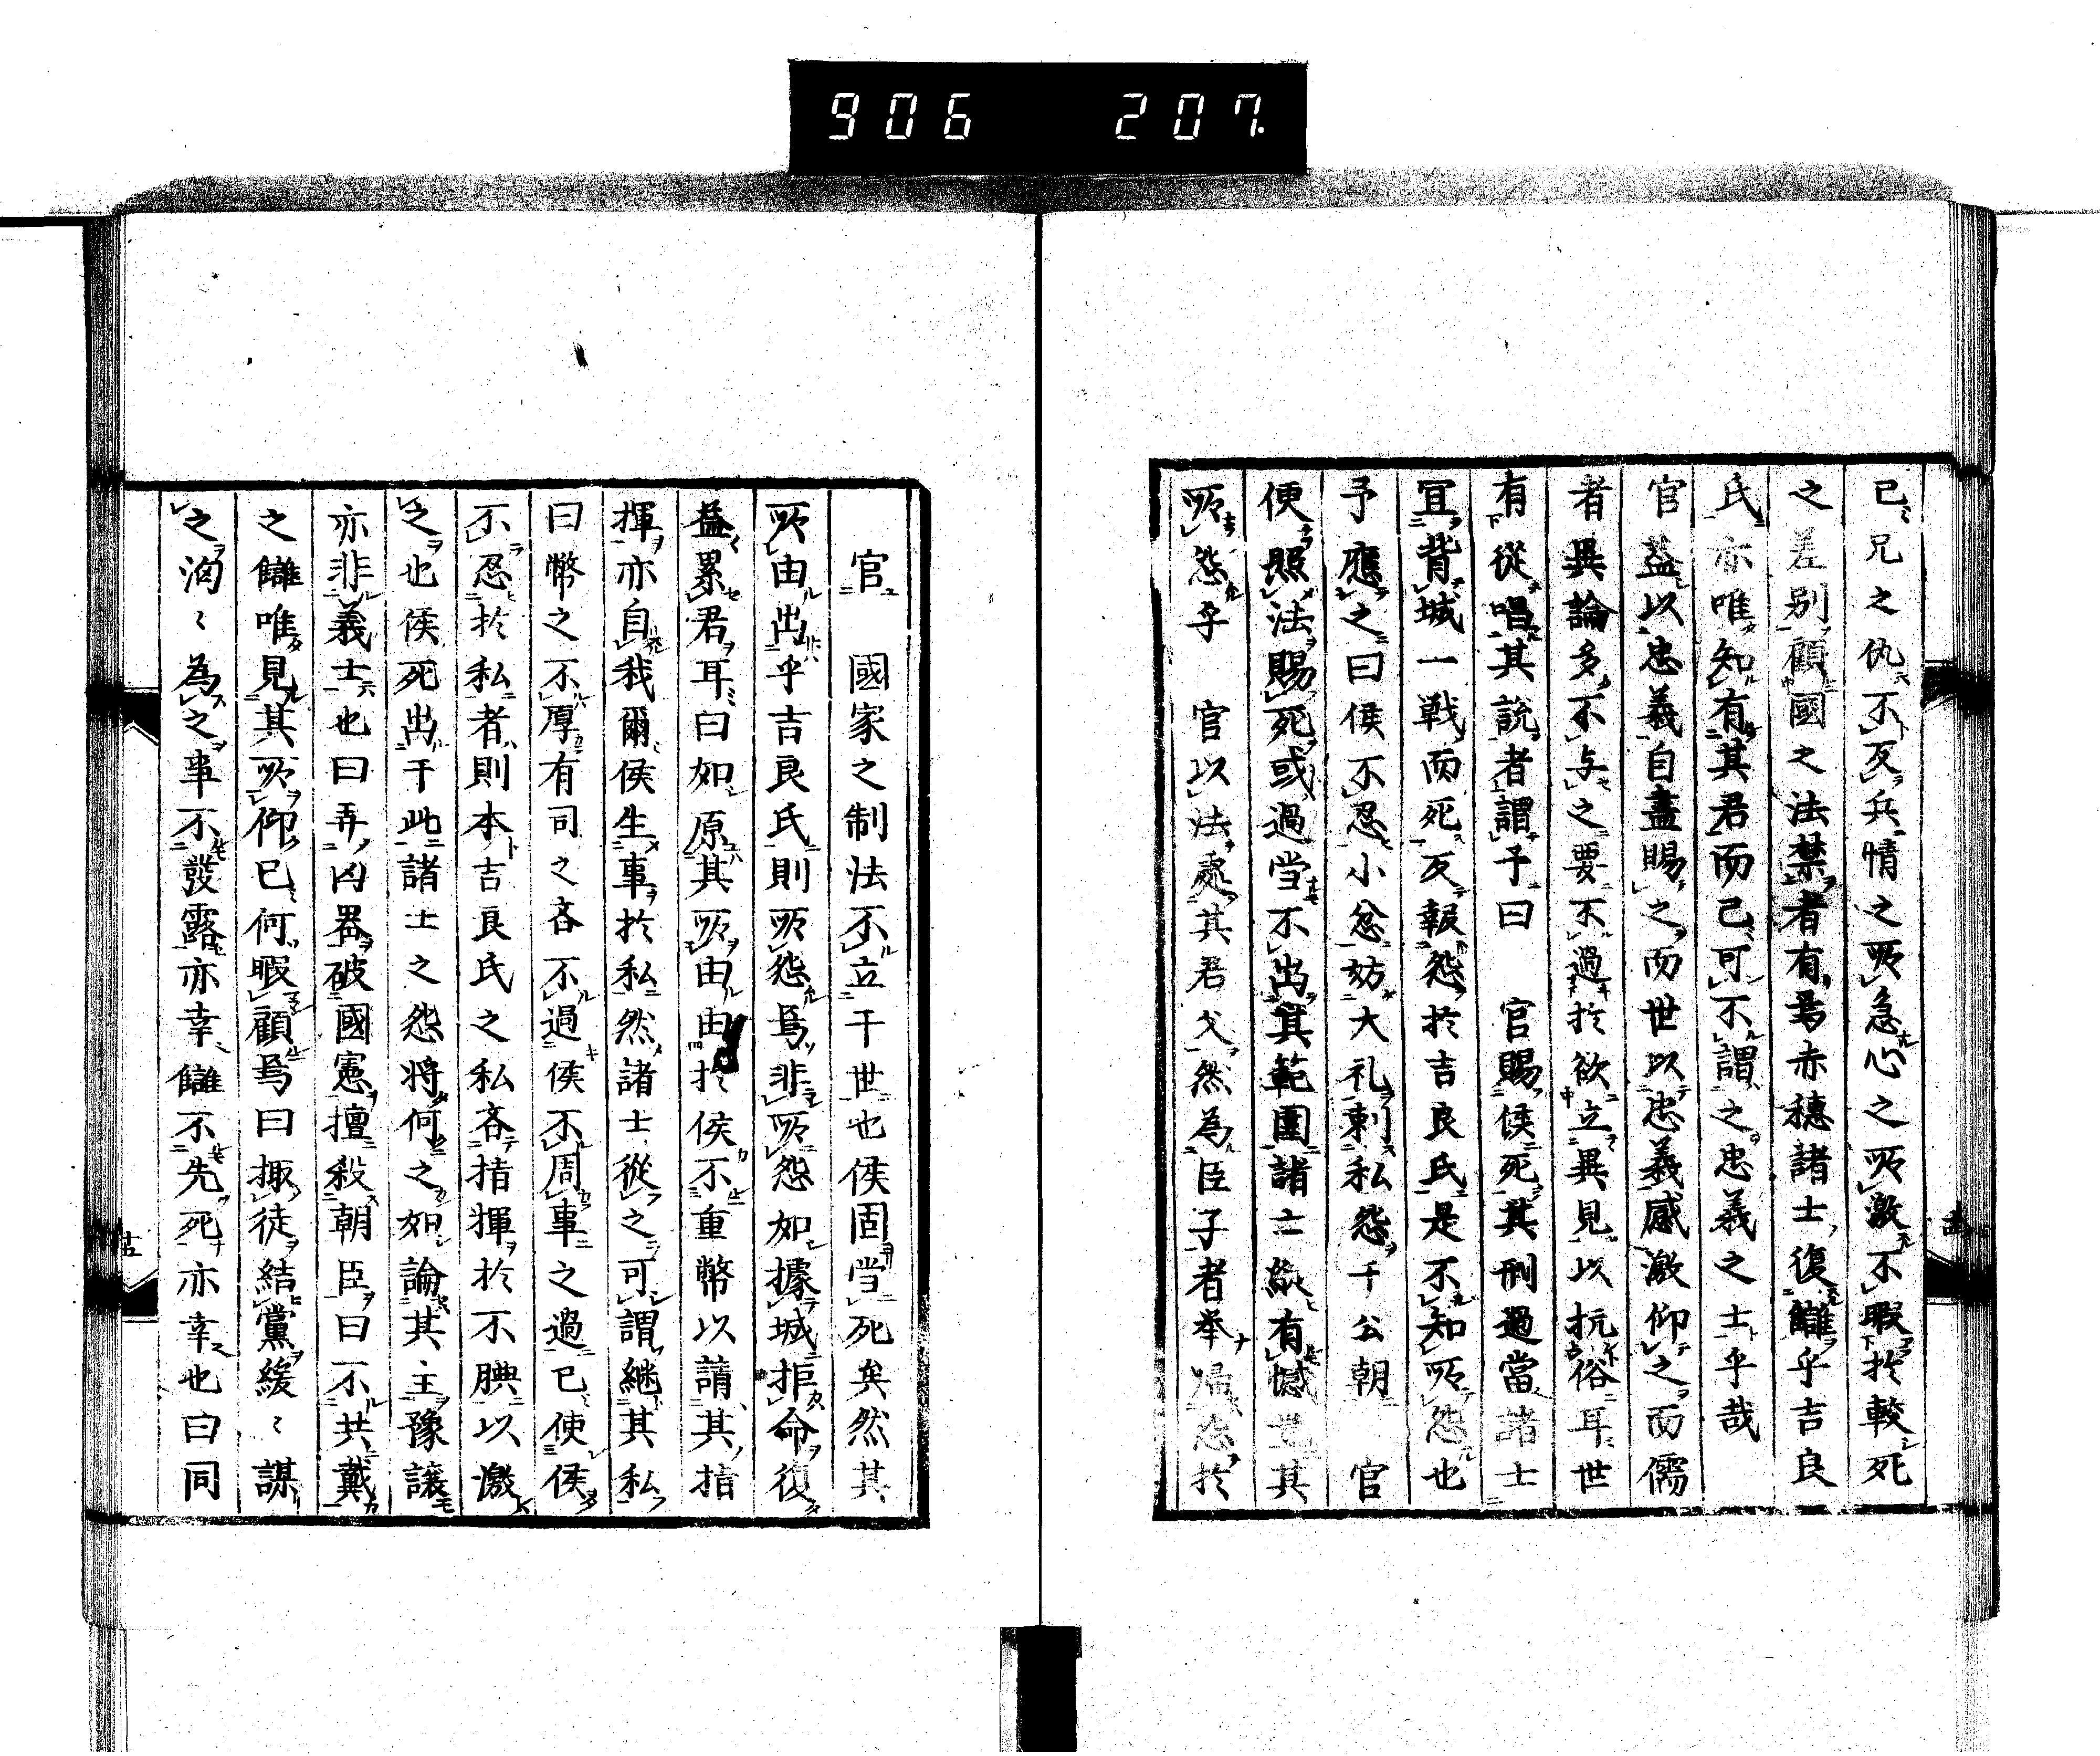 906 207
已兄之仇不反兵情之所急心之所激不暇於較死
之差別顧國之法禁者有焉赤穗諸士復讎乎吉良
氏亦唯知有其君而已可不謂之忠義之士乎哉
官益以忠義自盡賜之而世以忠義感激仰之而儒
者異論多不与之要不過於欲立異見以抗俗耳世
有從唱其說者謂予曰 官賜侯死其刑過當諸士
冝背城一戦而死反報怨於吉良氏是不知所怨也
予應之曰侯不忍小忿妨大礼刺私怨于公朝 官
便照法賜死或過当不出其範圍諸士縱有憾其
所怨乎 官以法處其君父然為臣子者奉歸怨於
官 國家之制法不立于世也侯固当死矣然其
所由出乎吉良氏則所怨焉非所怨如據城拒命復
益累君耳曰如原其所由由於侯不重幣以請其指
揮亦自我爾侯生事於私然諸士從之可謂継其私
曰幣之不厚有司之吝不過侯不周事之過已使侯
不忍於私者則本吉良氏之私吝指揮於不腆以激
之也侯死出于此諸士之怨將何之如論其主豫讓
亦非義士也曰弄凶器破國憲擅殺朝臣曰不共戴
之讎唯見其所仰已何暇顧焉曰掫徒結黨緩〻謀
之洶〻為之事不發露亦幸讎不先死亦幸也曰同